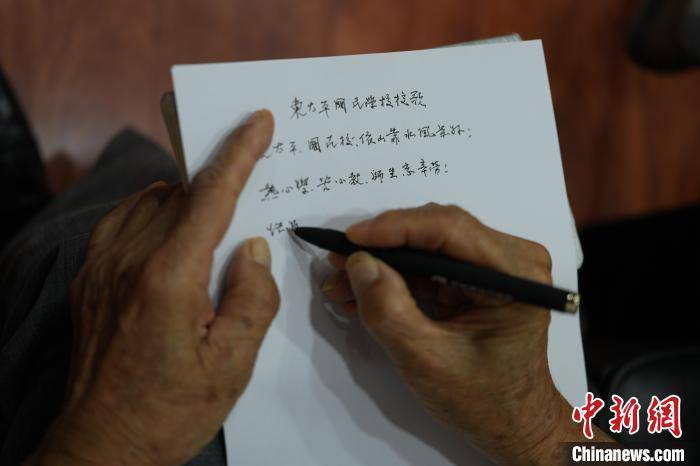 東太平國民學校校歌
東太平、國民校、依山靠水風景好；
熱心學、苦心教、師生忘辛勞！
快
中新网
Chinanews.com